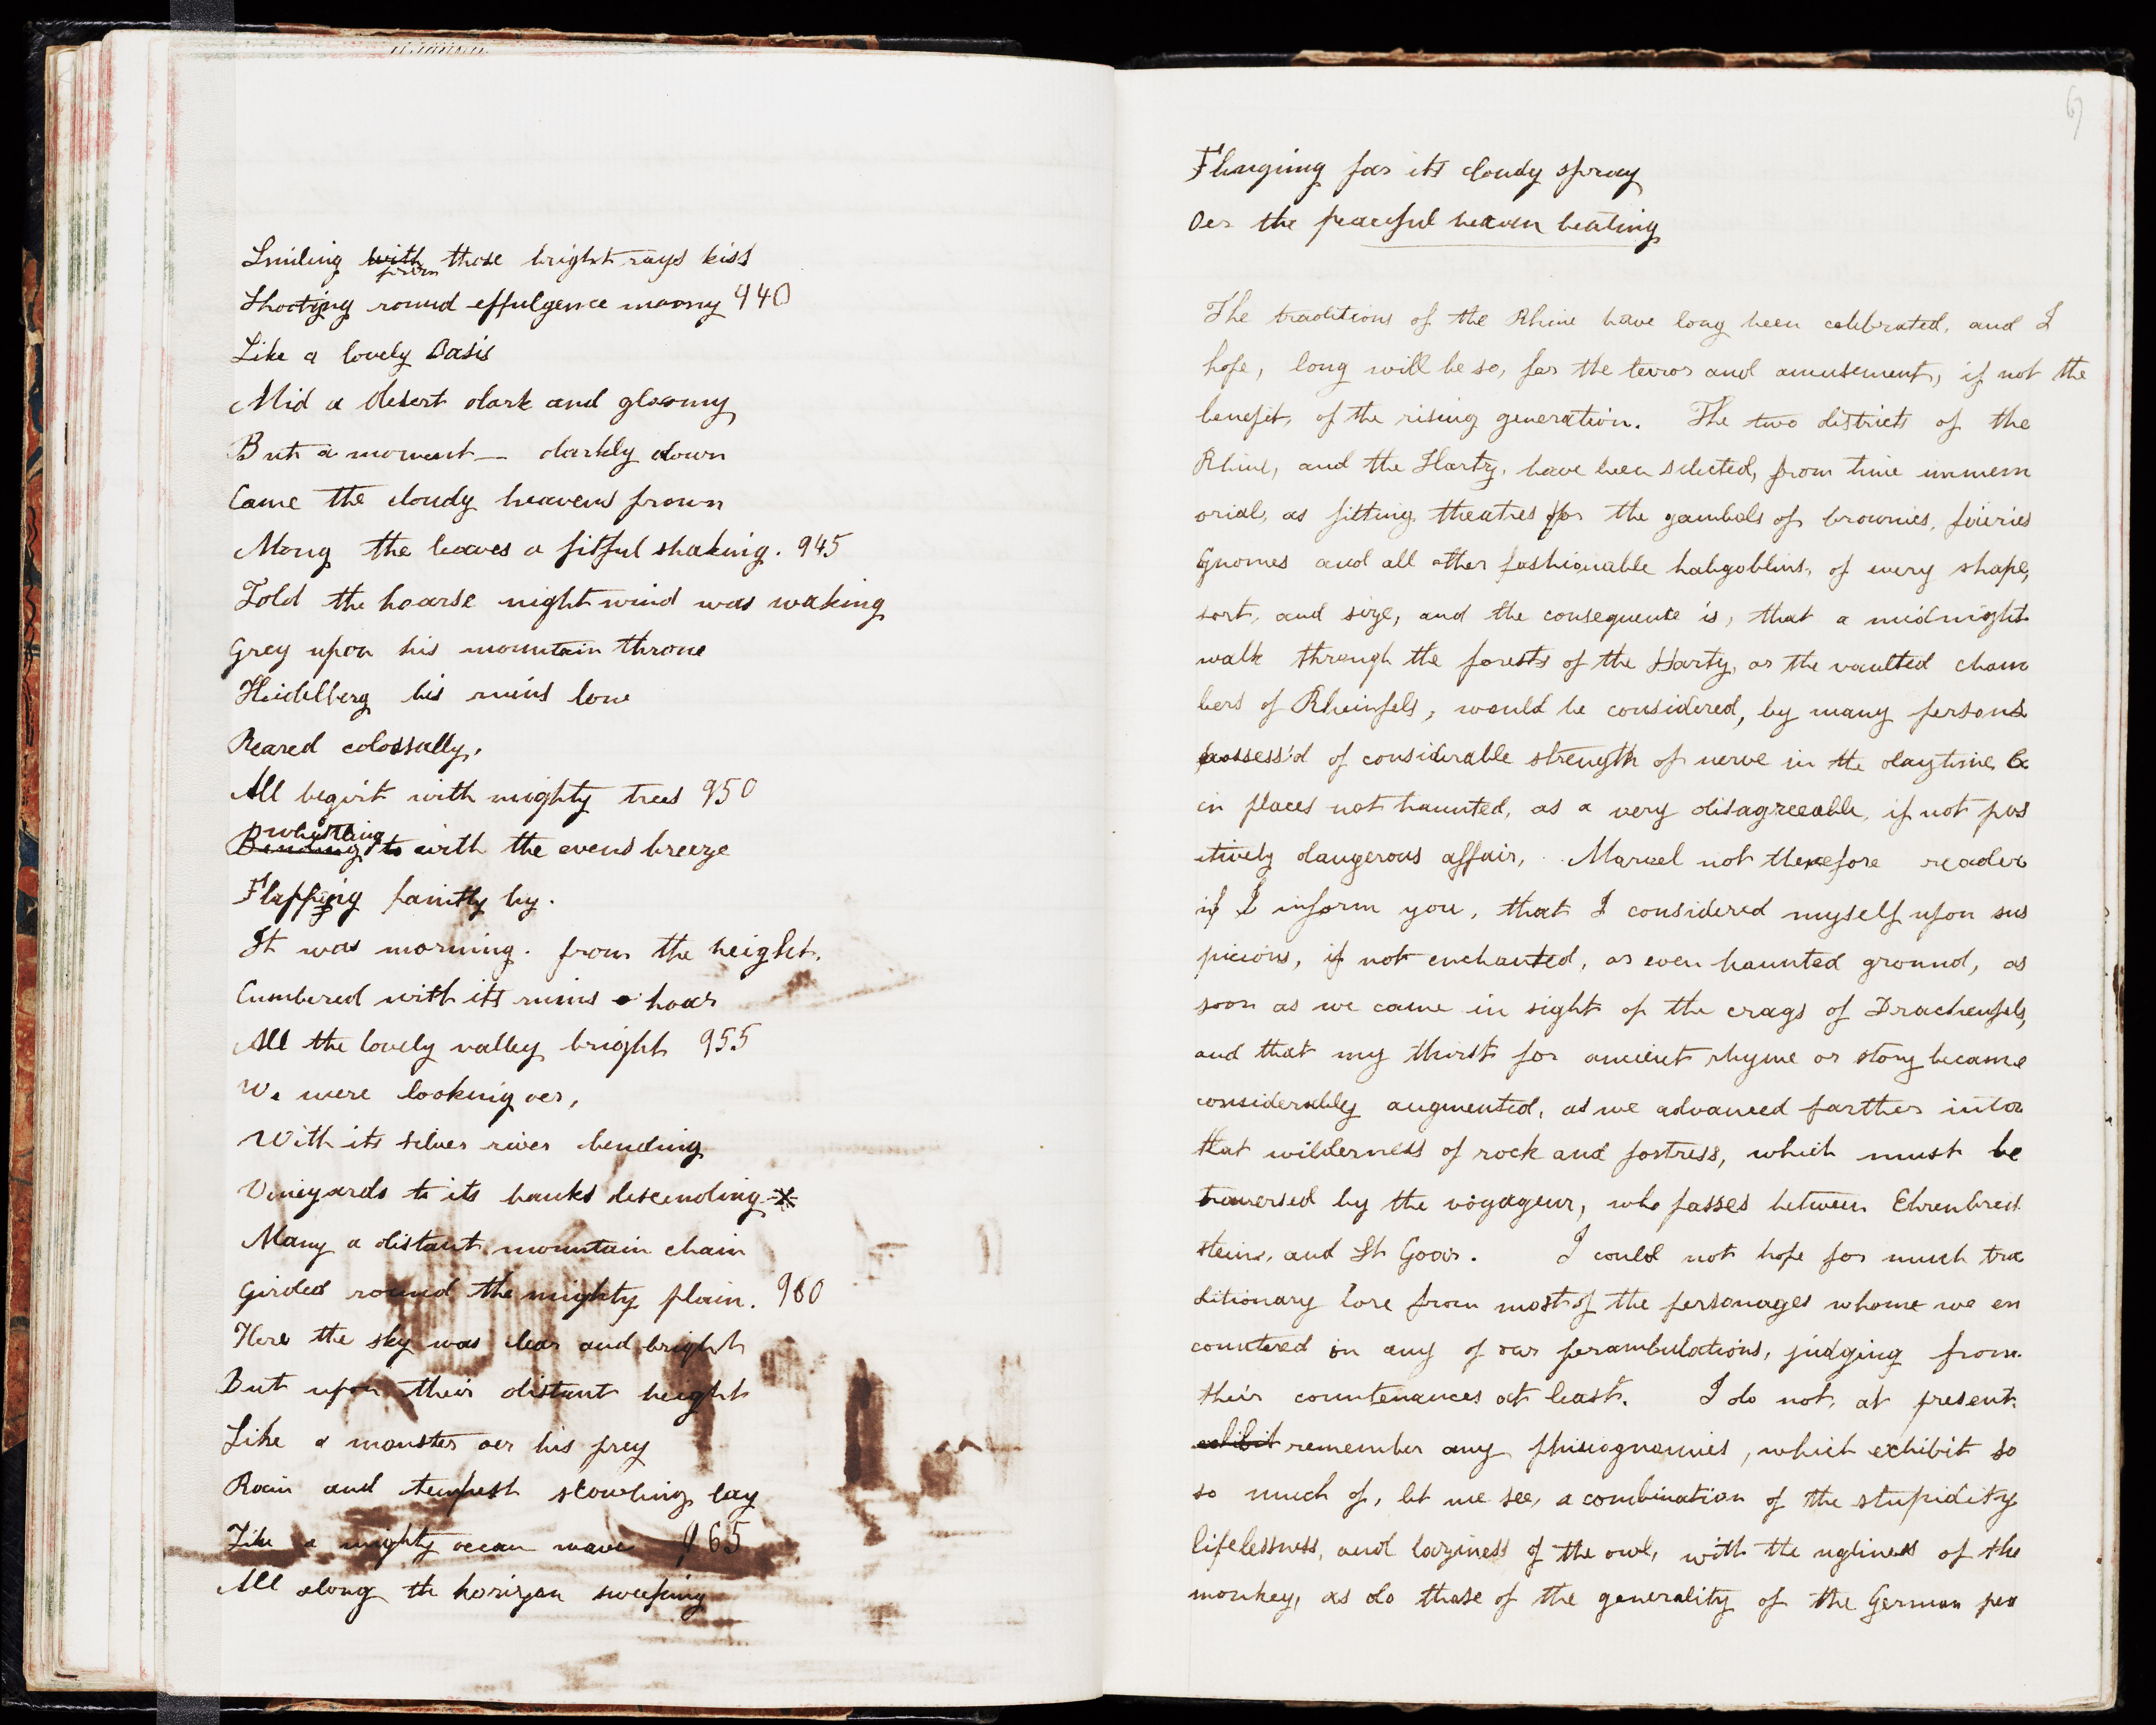 Smiling with from those bright rays kiss
Shooting round effulgence moony 940
Like a lovely Oasis
Mid a desert dark and gloomy
But a moment — darkly down
Came the cloudy heavens frown
Mong the leaves a fitful shaking. 945
Told the hoarse night wind was waking
Grey upon his mountain throne
Heidelberg his ruins lone
Reared colossally.
All begirt with mighty trees 950
whistling
Bending to with the evens breeze
Flapping faintly by.
It was morning. from the height.
Cumbered with its ruins hoar
All the lovely valley bright 955
We were looking oer,
With its silver river bending
Vineyards to its banks descending *
Many a distant mountain chain
Girded round the mighty plain. 960
Here the sky was clear and bright
But upon their distant height
Like a monster oer his prey
Rain and tempest scowling lay
Like a mighty ocean wave 965
All along the horizon sweeping
Flinging far its cloudy spray
Oer the peaceful heaven beating
The traditions of the Rhine have long been celebrated, and I
hope, long will be so, for the terror and amusement, if not the
benefit, of the rising generation. The two districts of the
Rhine, and the Hartz, have been selected, from time immem
orial, as fitting theatres for the gambols of brownies, fairies
Gnomes and all other fashionable hobgoblins, of every shape,
sort, and size, and the consequence is, that a midnight
walk through the forests of the Hartz, or the vaulted cham
bers of Rheinfels, would be considered, by many persons
possess'd of considerable strength of nerve in the daytime &
in places not haunted, as a very disagreeable, if not pos
itively dangerous affair, Marvel not therefore reader
if I inform you, that I considered myself upon sus
picious, if not enchanted, or even haunted ground, as
soon as we came in sight of the crags of Drachenfels,
and that my thirst for ancient rhyme or story became
considerably augmented, as we advanced farther into
that wilderness of rock and fortress, which must be
traversed by the voyageur, who passes between Ehrenbreit
stein, and St Goar. I could not hope for much tra
ditionary lore from most of the personages whome we en
countered in any of our perambulations, judging from
their countenances at least. I do not, at present.
exhibit remember any phisiognomies, which exhibit so
so much of, let me see, a combination of the stupidity
lifelessness, and laziness of the owl, with the ugliness of the
monkey, as do those of the generality of the German pea